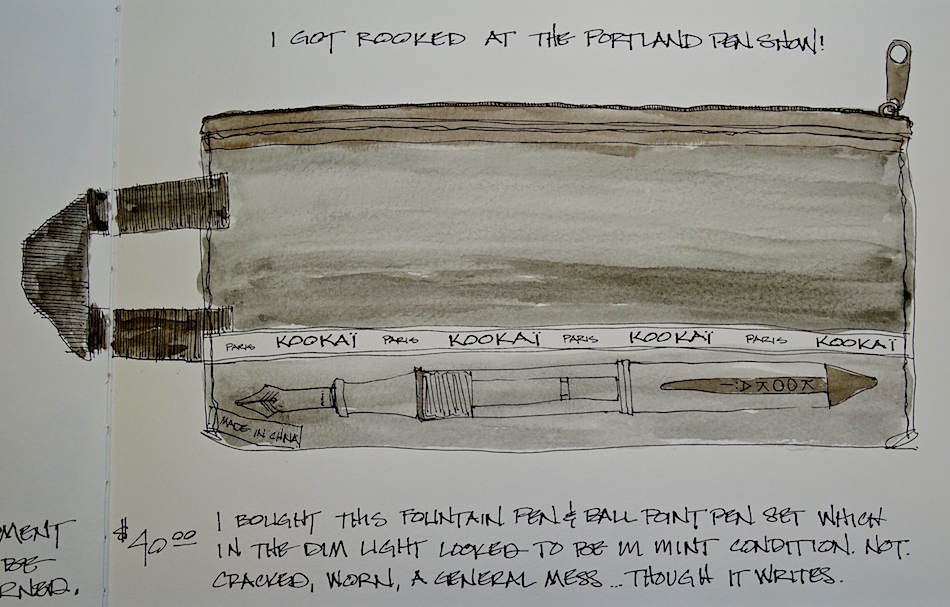 I GOT ROOKED AT THE PORTLAND PEN SHOW!
PARIS KOOKAÏ PARIS KOOKAÏ PARIS KOOKAÏ PARIS KOOKAÏ
KOOKAÏ
MADE IN CHINA
MENT
BE
RNED.
$40.00
I BOUGHT THIS FOUNTAIN PEN & BALL POINT PEN SET WHICH
IN THE DIM LIGHT LOOKED TO BE IN MINT CONDITION. NOT.
CRACKED, WORN, A GENERAL MESS... THOUGH IT WRITES.